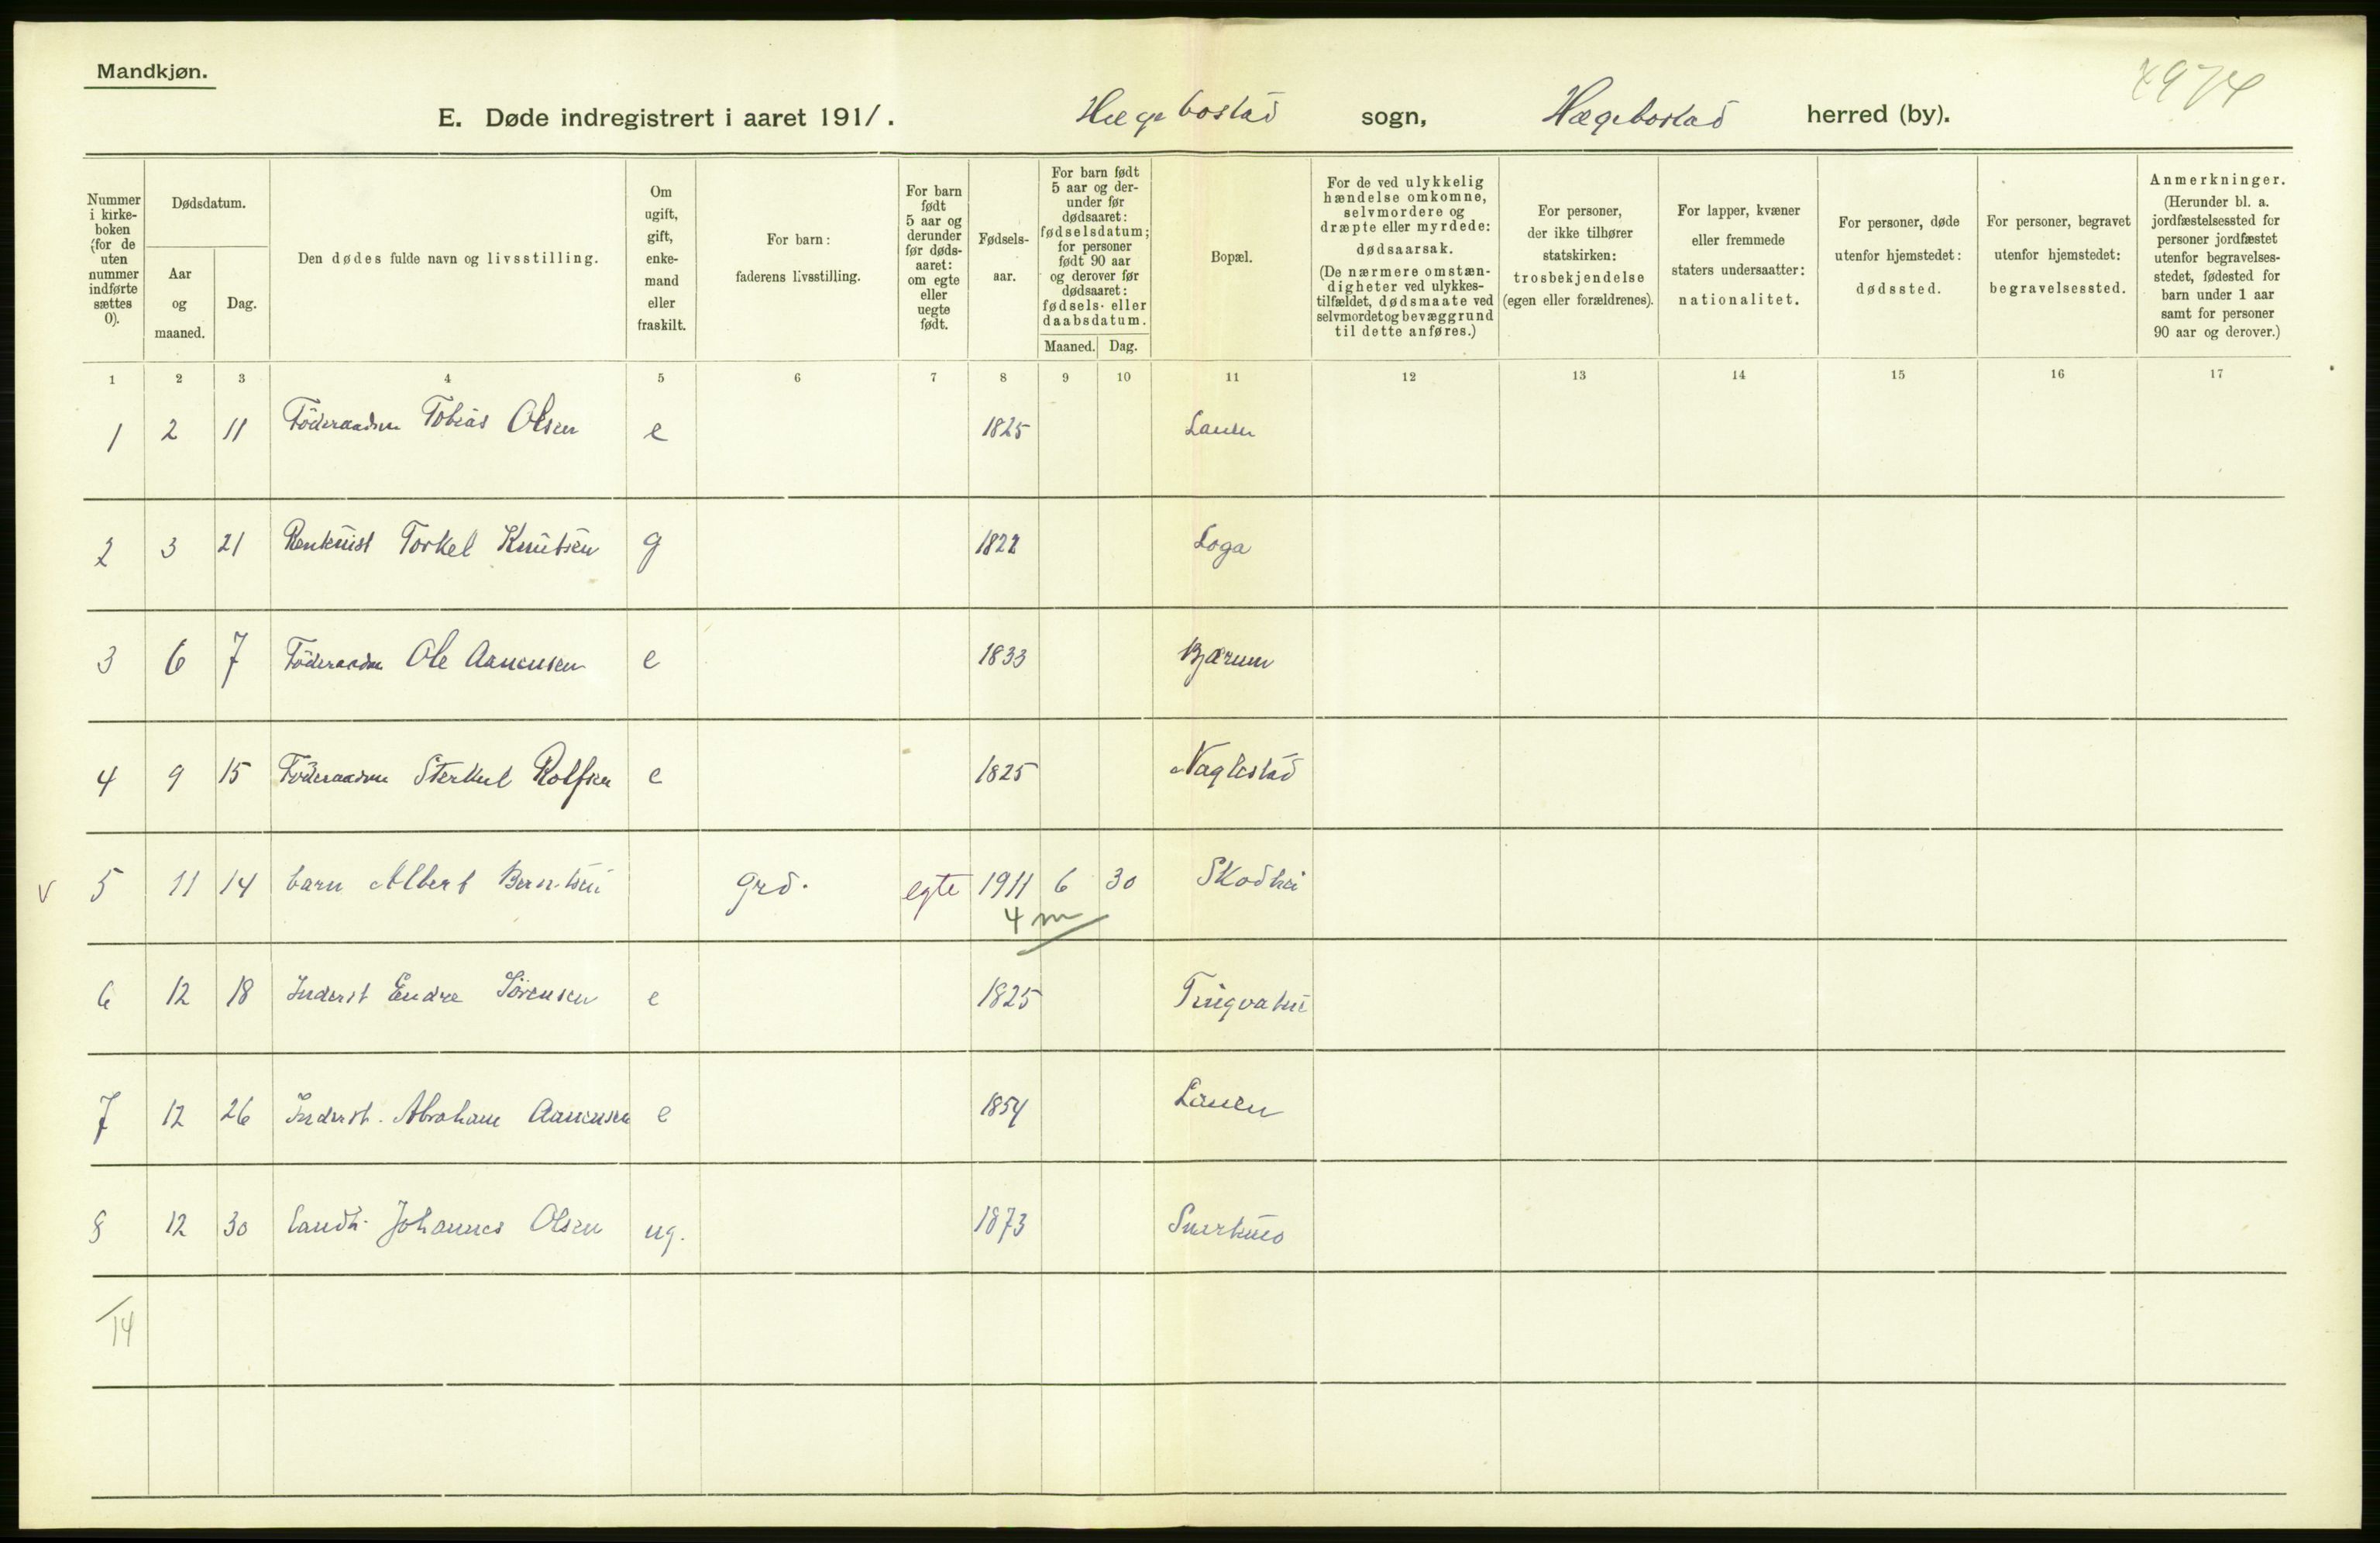 Mandkjøn.
4974
E. Døde indregistrert i aaret 1911. Hægebostad sogn, Hægebostad herred (by).
Nummer i kirke-boken (for de uten nummer indførte sættes 0).
Dødsdatum.
Aar og maaned.
Dag.
Den dødes fulde navn og livsstilling.
Om ugift, gift, enke-mand eller fraskilt.
For barn: faderens livsstilling.
For barn født 5 aar og derunder før døds-aaret: om egte eller uegte født.
Fødsels-aar.
For barn født 5 aar og der-under før dødsaaret: fødselsdatum; for personer født 90 aar og derover før dødsaaret: fødsels- eller daabsdatum.
Maaned. Dag.
Bopæl.
For de ved ulykkelig hændelse omkomne, selvmordere og dræpte eller myrdede: dødsaarsak. (De nærmere omstæn-digheter ved ulykkes-tilfældet, dødsmaate ved selvmordet og bevæggrund til dette anføres.)
For personer, der ikke tilhører statskirken: trosbekjendelse (egen eller forældrenes).
For lapper, kvæner eller fremmede staters undersaatter: nationalitet.
For personer, døde utenfor hjemstedet: dødssted.
For personer, begravet utenfor hjemstedet: begravelsessted.
Anmerkninger. (Herunder bl. a. jordfæstelsessted for personer jordfæstet utenfor begravelses-stedet, fødested for barn under 1 aar samt for personer 90 aar og derover.)
1 2 3 4 5 6 7 8 9 10 11 12 13 14 15 16 17
1 2 11 Föderaadsm Tobias Olsen e 1825 Lauen
2 3 21 Torkel Knutsen g 1822 Loga
3 6 7 Föderaadm Ole Aanensen e 1833 Bjærum
4 9 15 Föderaadsm Sterkul Rolfsen e 1825 Naglestad
v 5 11 14 barn Albert Berntsen grd. egte 1911 6 30 Skodhei
4 m
6 12 18 Inderst Endre Sörensen e 1825 Tingvatne
7 12 26 Inderst. Abraham Aanensen e 1854 Lauen
8 12 30 Landh. Johannes Olsen ug. 1873
14